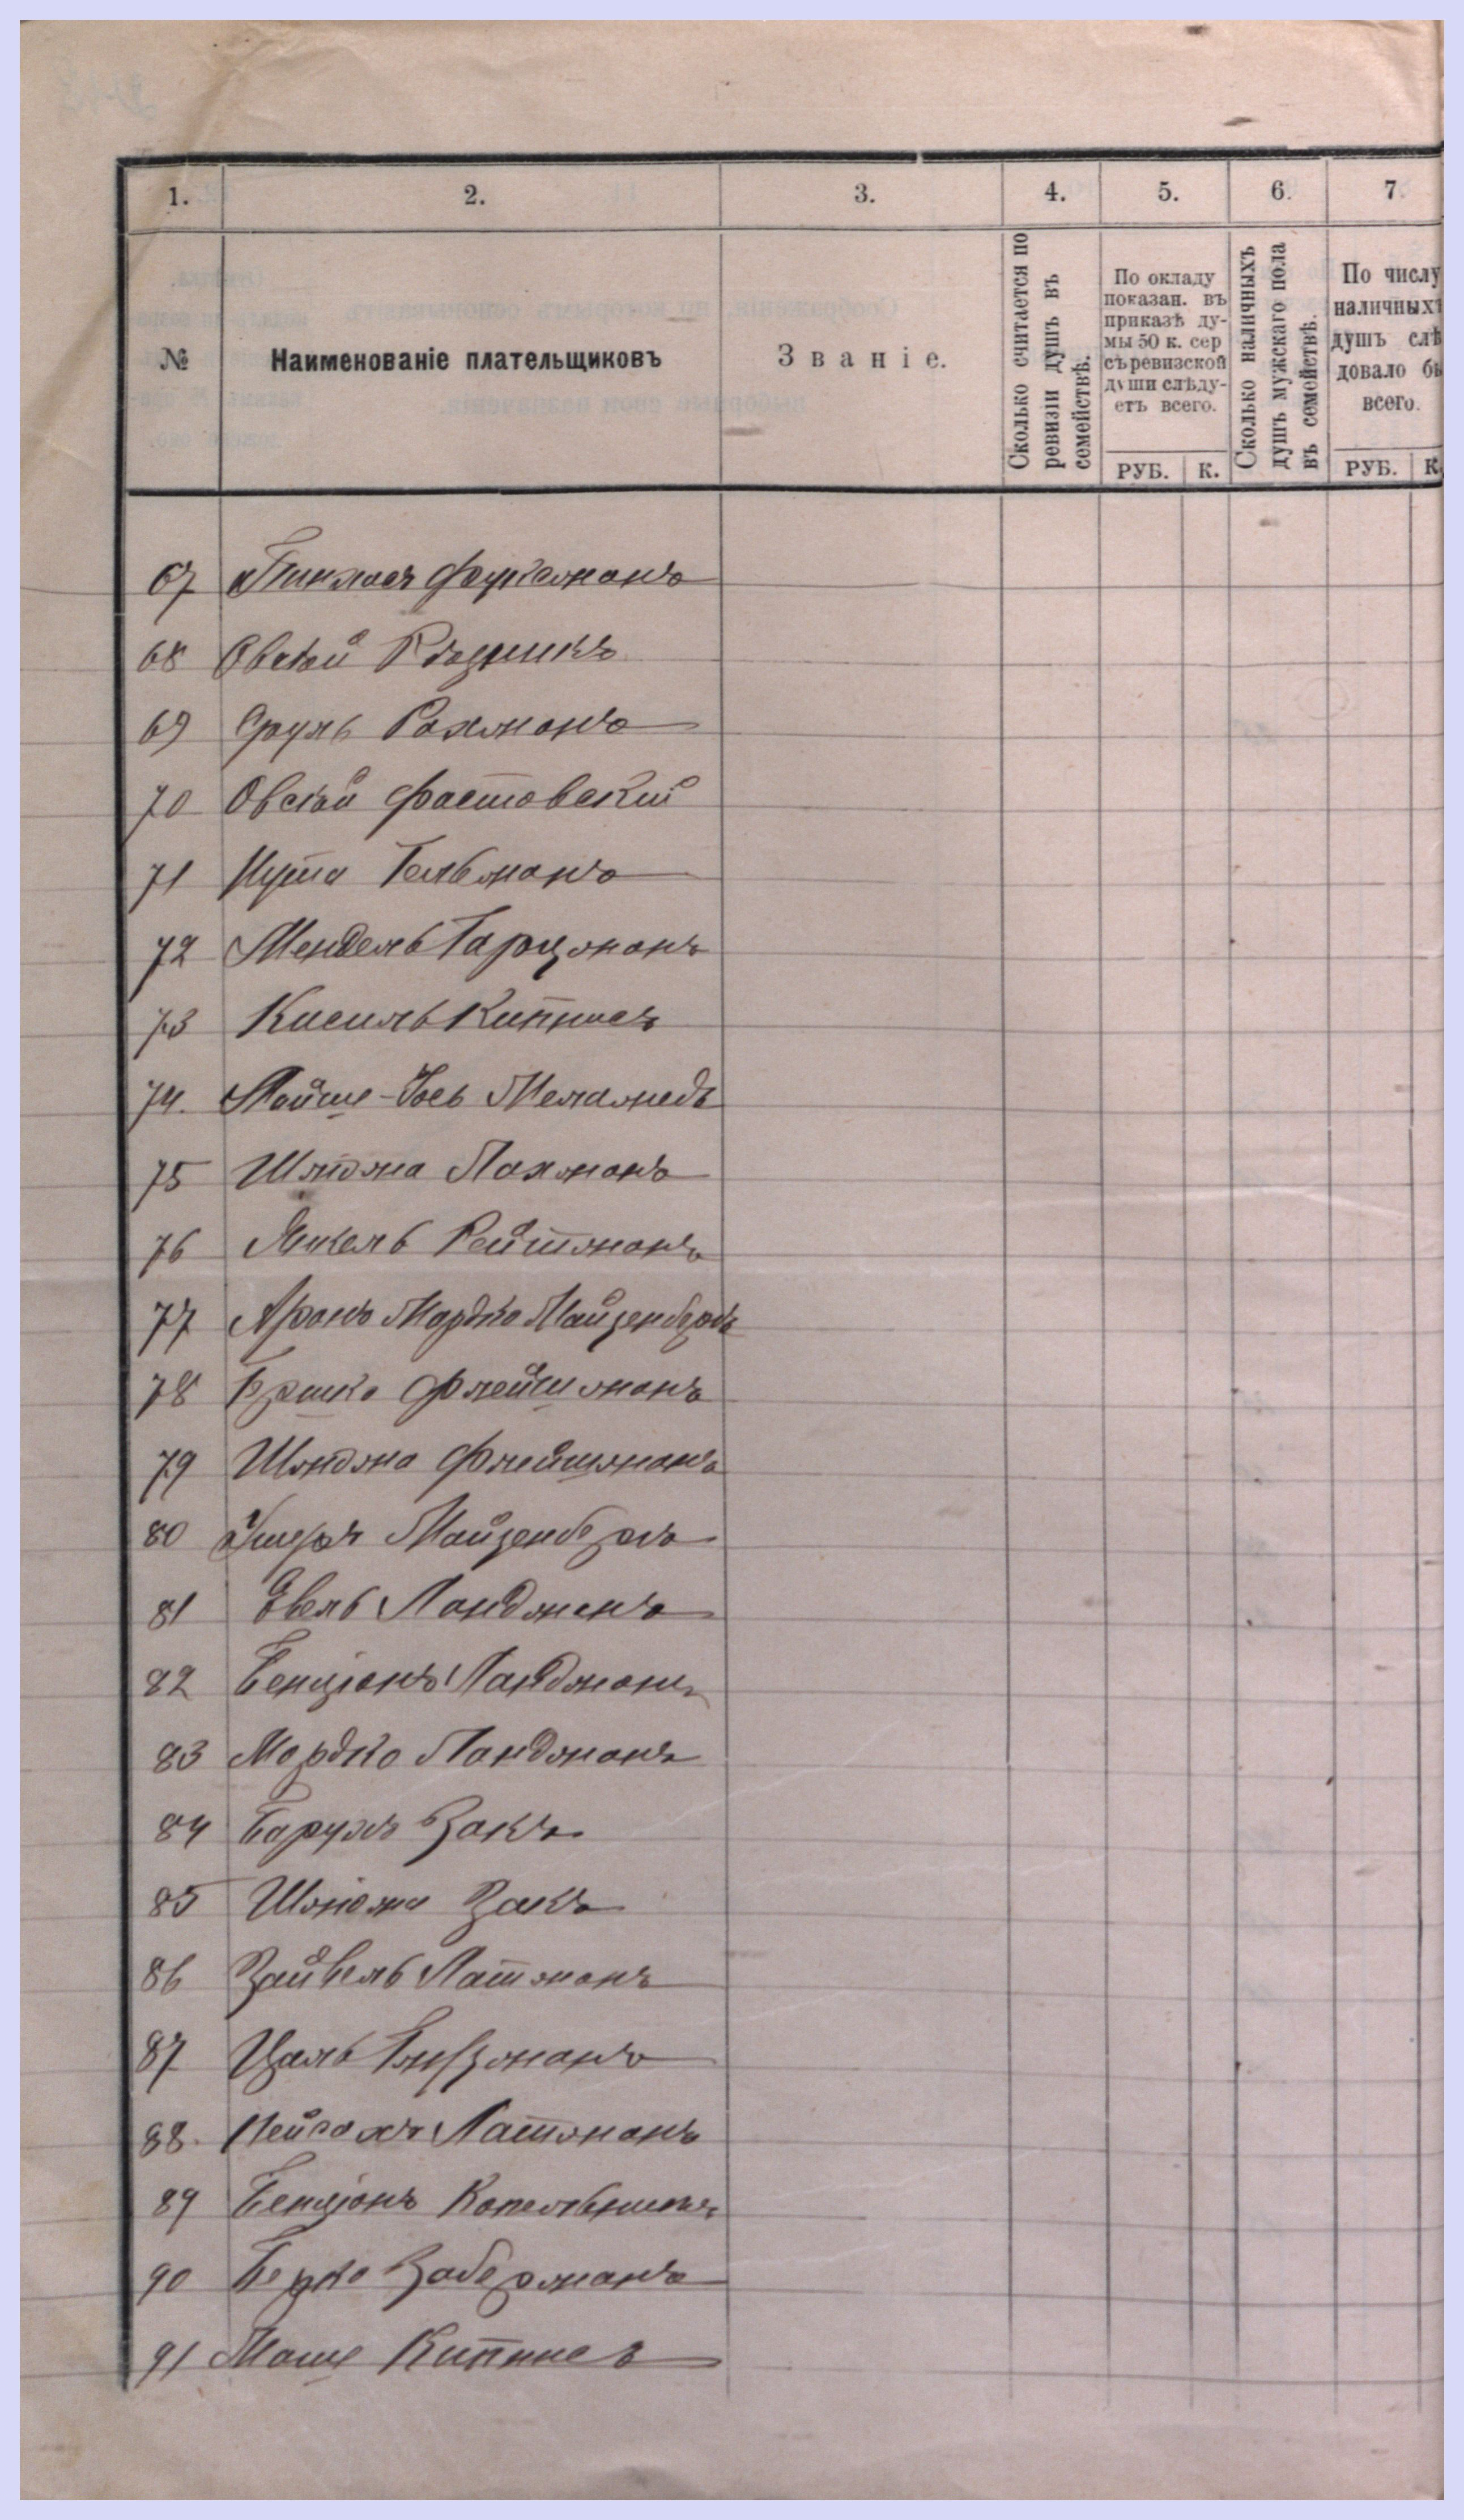 1. 2. 3. 4. 5. 6. 7.
№
Наименованіе плательщиковъ
Званіе.
Сколько считается по
ревизіи душъ въ
семействѣ.
По окладу
показан. въ
приказѣ ду-
мы 50 к. сер
съ ревизской
души слѣду-
етъ всего.
РУБ. К.
Сколько наличныхъ
душъ мужскаго пола
въ семействѣ.
По числу
наличныхъ
душъ слѣ
довало бы
всего.
РУБ. К
67 Пинхасъ Фуксманъ
68 Овсѣй Рѣзникъ
69 Сруль Рахманъ
70 Овсѣй Фастовскій
71 Нута Гельманъ
72 Мендель Гарцманъ
73 Кисиль Кипнисъ
74. Мойше-Іось Меламедъ
75 Шлёма Лахманъ
76 Янкель Рейтманъ
77 Аронъ Мордко Майзенбергъ
78 Гершко Флейшманъ
79 Шлёма Флейшманъ
80 Ушеръ Майзенбергъ
81 Эвель Ландманъ
82 Бенціонъ Ландманъ
83 Мордко Ландманъ
84 Барухъ Закъ
85 Шлёма Закъ
86 Зайвель Латманъ
87 Цаль
88. Пейсахъ Латманъ
89 Бенціонъ Копельникъ
90 Берко Заберманъ
91 Моше Кипнисъ